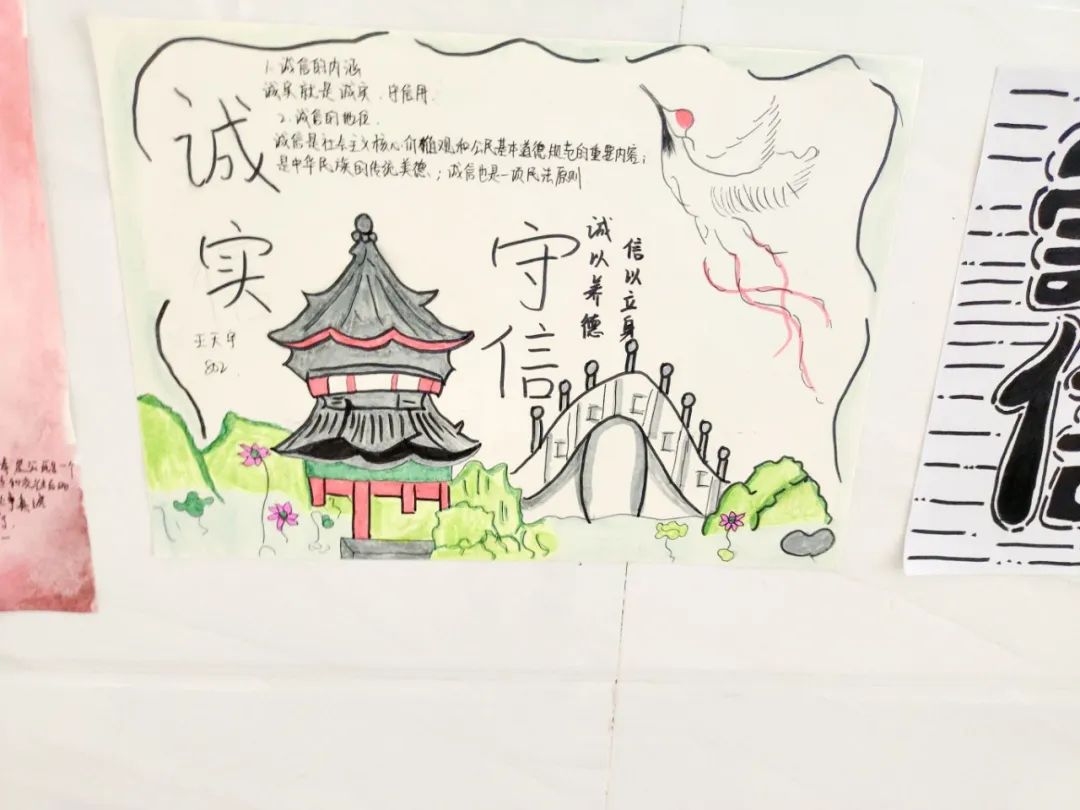 诚实
1. 诚信的内涵
诚实就是诚实、守信用.
2. 诚信的地位.
诚信是社会主义核心价值观和公民基本道德规范的重要内容;
是中华民族的传统美德、; 诚信也是一项民法原则
守信
诚以养德
信以立身
802
信